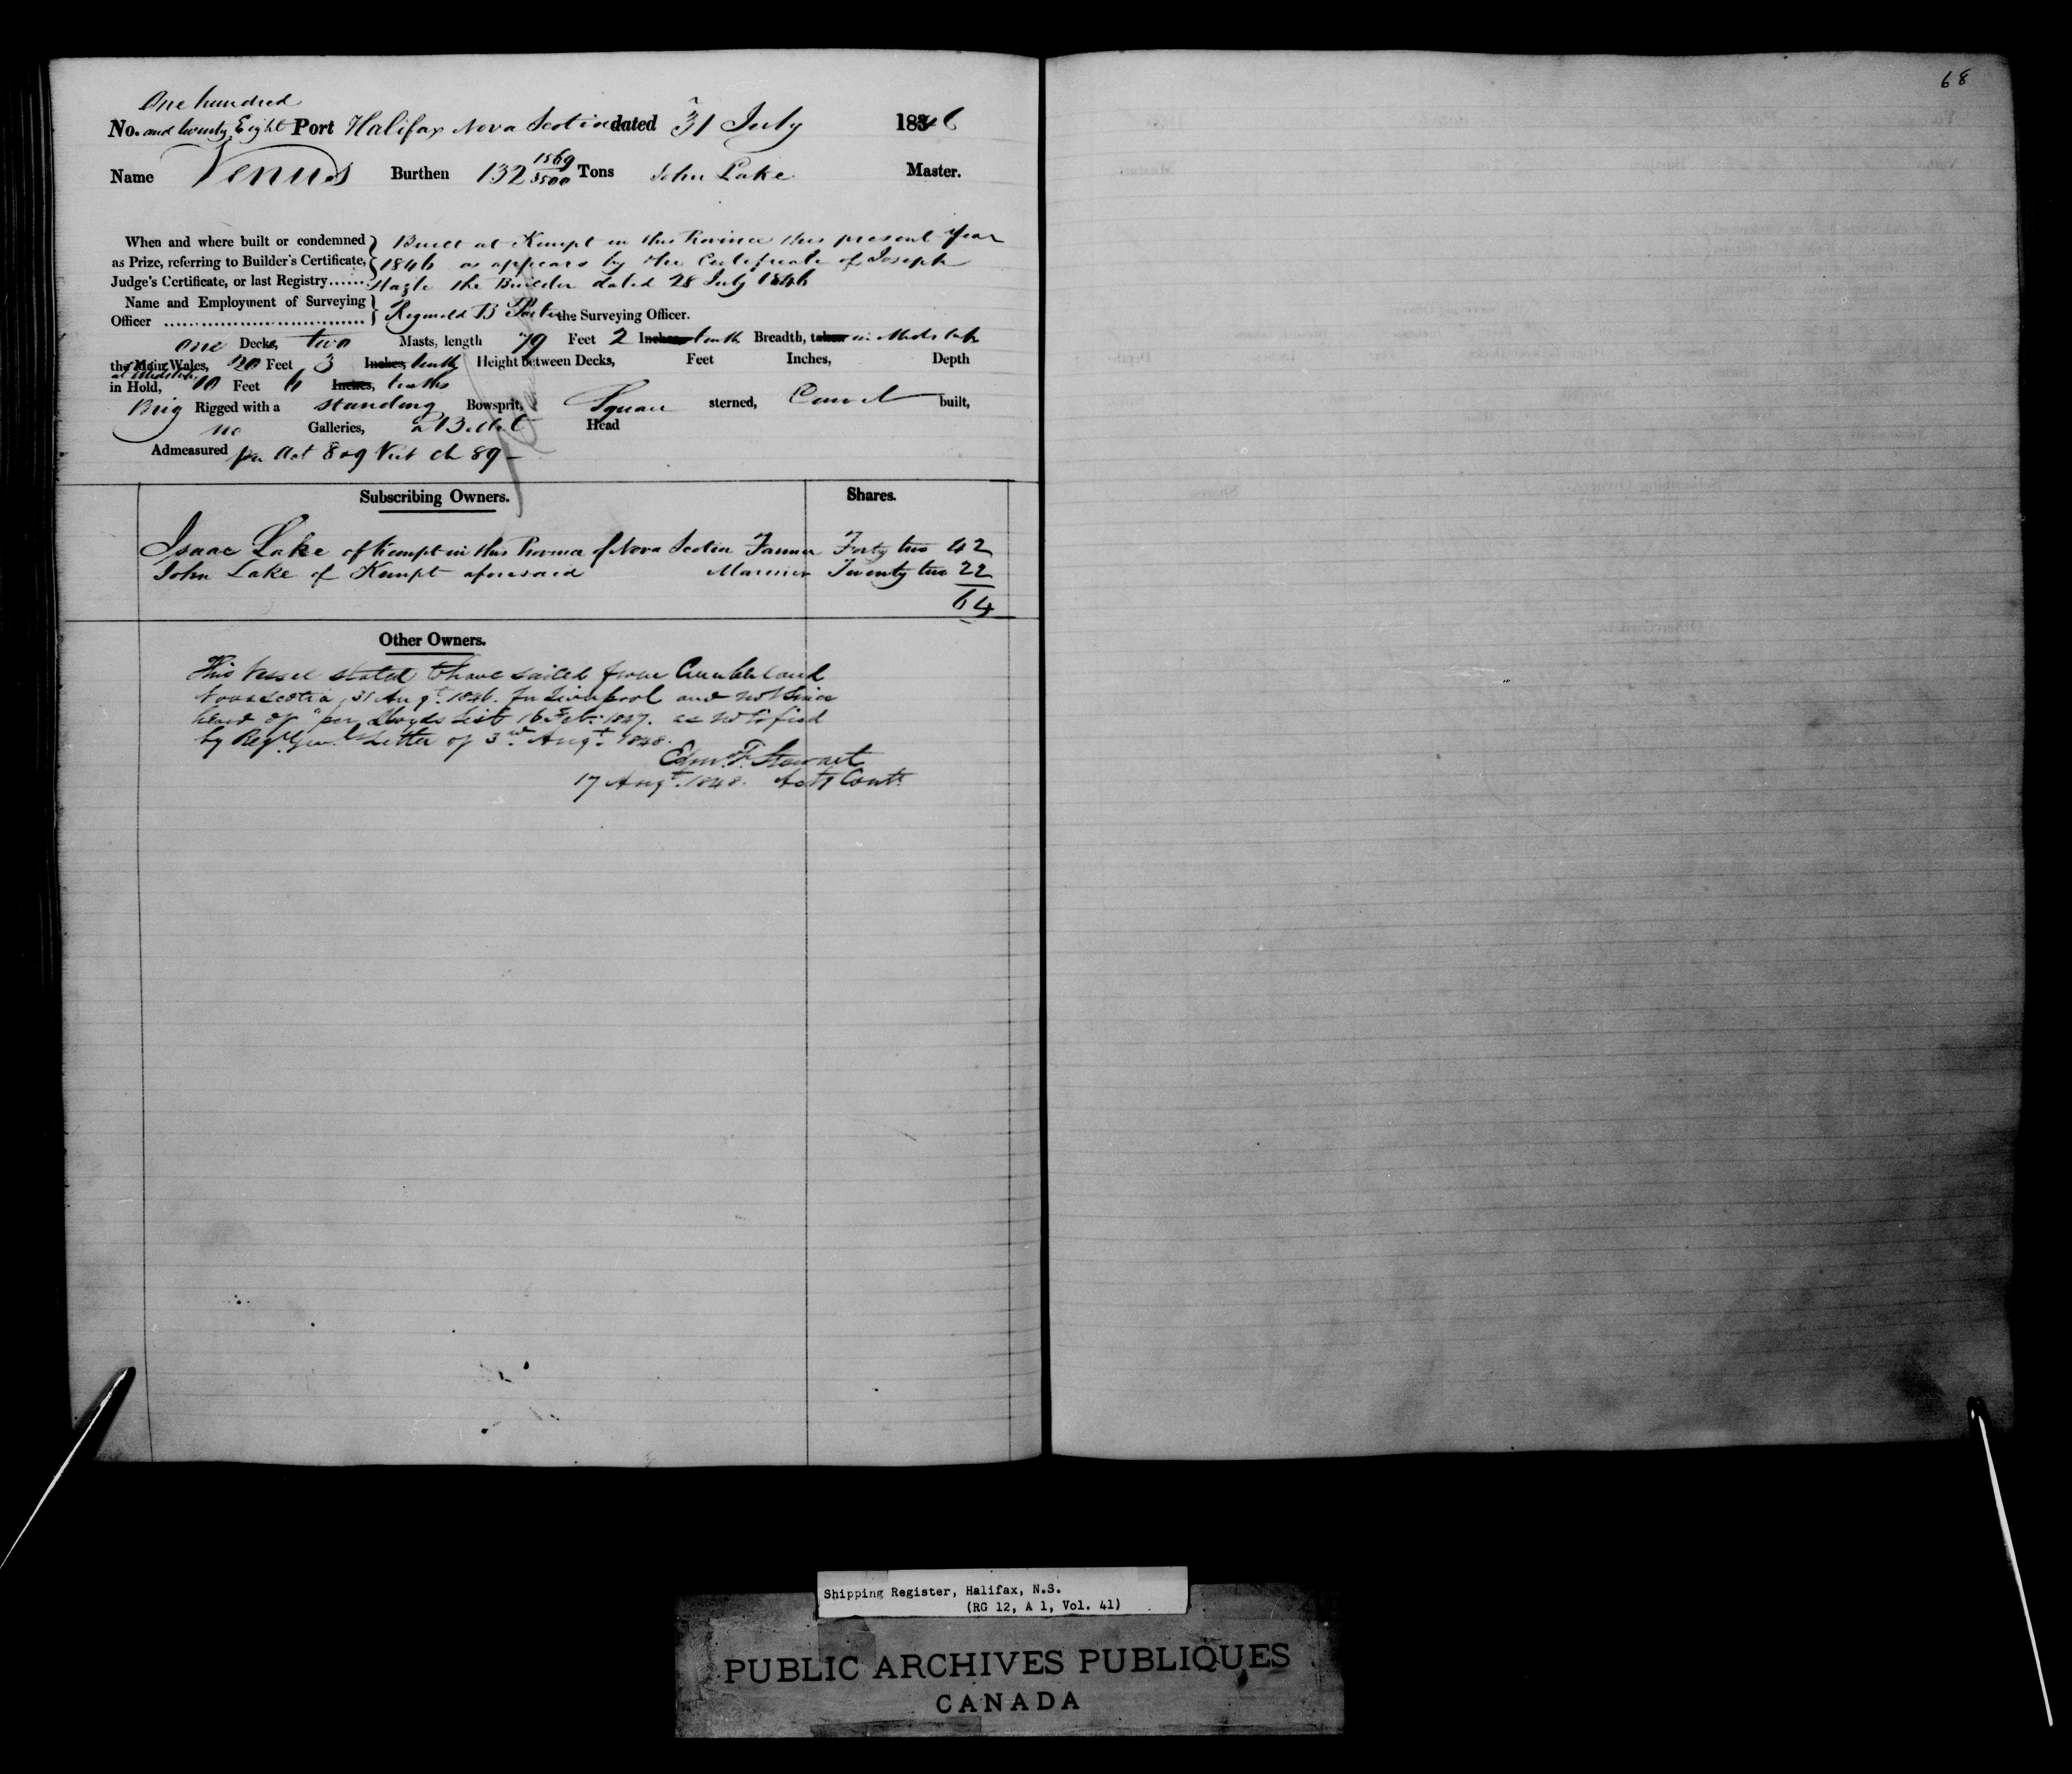 68
One hundred
No. and twenty Eight Port Halifax Nova Scotia dated 31 July 1846
Name Venus Burthen 132 1569/3500 Tons John Lake Master.
When and where built or condemned Built at Kempt in this Province this present year
as Prize, referring to Builder's Certificate, 1846 as appears by the Certificate of Joseph
Judge's Certificate, or last Registry...... the Builder dated 28 July 1846
Name and Employment of Surveying
Officer ................................ Reginald B Porter the Surveying Officer.
One Decks, two Masts, length 79 Feet 2 Inches tenths Breadth, taken in Midships
the Main Wales, 20 Feet 3 Inches, tenths Height between Decks, Feet Inches, Depth
at Midships
in Hold, 10 Feet 6 Inches, tenths
Brig Rigged with a standing Bowsprit, Square sterned, Carvel built,
no Galleries, a Billet Head
Admeasured per Act 8 & 9 Vict Ch 89 –
Subscribing Owners. Shares.
Isaac Lake of Kempt in this Province of Nova Scotia Farmer Forty two 42
John Lake of Kempt aforesaid Mariner Twenty two 22
64
Other Owners.
This Vessel stated to have sailed from Cumberland
Nova Scotia, 31 Augt. 1846. for Liverpool and not since
heard of "per Lloyds List 16 Feb: 1847. as notified
by Reg. Genl. Letter of 3rd. Augt. 1848.
Edm. F. Stewart
17 Augt. 1848. Actg Contr.
Shipping Register, Halifax, N.S.
(RG 12, A 1, Vol. 41)
PUBLIC ARCHIVES PUBLIQUES
CANADA